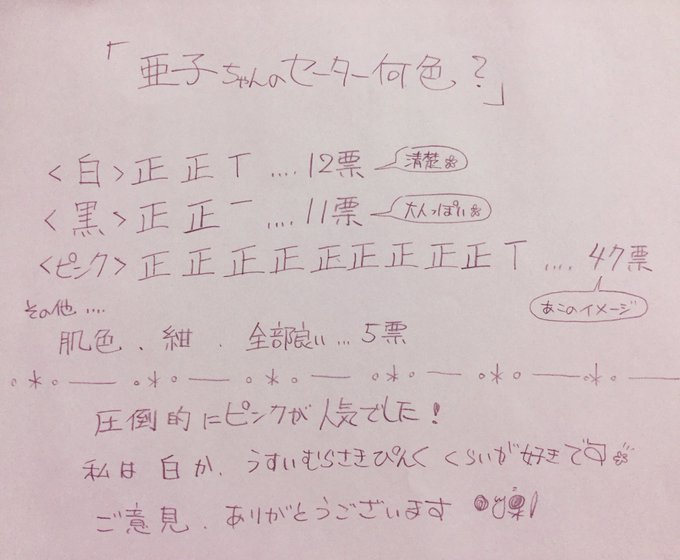 「亜子ちゃんのセーター何色?」
<白>正正T....12票 清楚
<黒>正正一....11票 大人っぽい
<ピンク>正正正正正正正正正T....47票
あこのイメージ
その他....
肌色、紺、全部良い...5票
圧倒的にピンクが人気でした!
私は白か、うすいむらさきぴんくくらいが好きです
ご意見、ありがとうございます